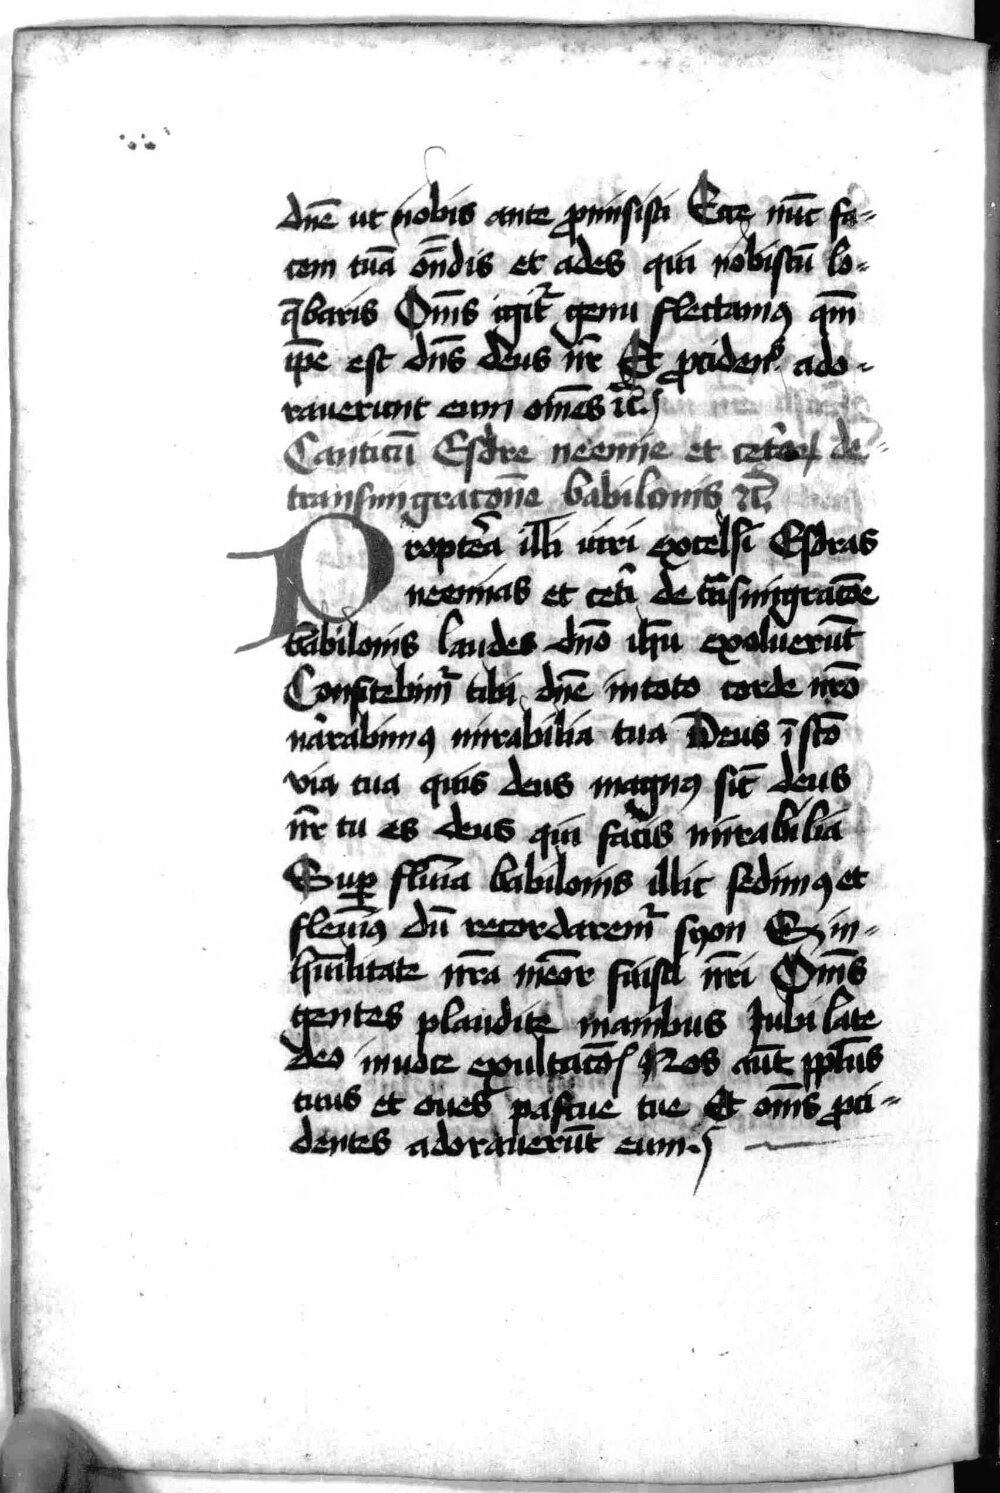 dn̄e ut nobis ante ꝓmisisti Ecce nūc fa=
ciem tuā on̄dis et ades qui nobiscū lo=
q̄baris Om̄s igit᷑ genu flectamꝰ qm̄
ip̄e est dn̄s deus nr̄ Et ꝓciden̄ ado=
raverunt eum om̄es ⁊c̄
Canticū Esdre neemie et ceteroꝝ de=
transmigracōne babilonis ⁊c̄
Propterea illi viri excelsi Esdras
neemias et cet̄i de trāsmigracōe
babilonis laudes dn̄o ih̄u exoluerūt
Confitebim᷑ tibi dn̄e in toto corde nr̄o
narrabimꝰ mirabilia tua Deus ī sc̄o
via tua quis deus magnꝰ sic̄ deus
nr̄ tu es deus qui facis mirabilia
Suꝑ flūia babilonis illic sedimꝰ et
flevīꝰ dū recordarem᷑ syon Et in=
hūilitate nr̄a mēor fuisti nr̄i Om̄s
gentes plaudite manibus Jubilate
deo in voce exultacōis Nos aūt ppl̄us
tuus et oves pascue tue Et om̄s ꝓci=
dentes adoraverūt eum